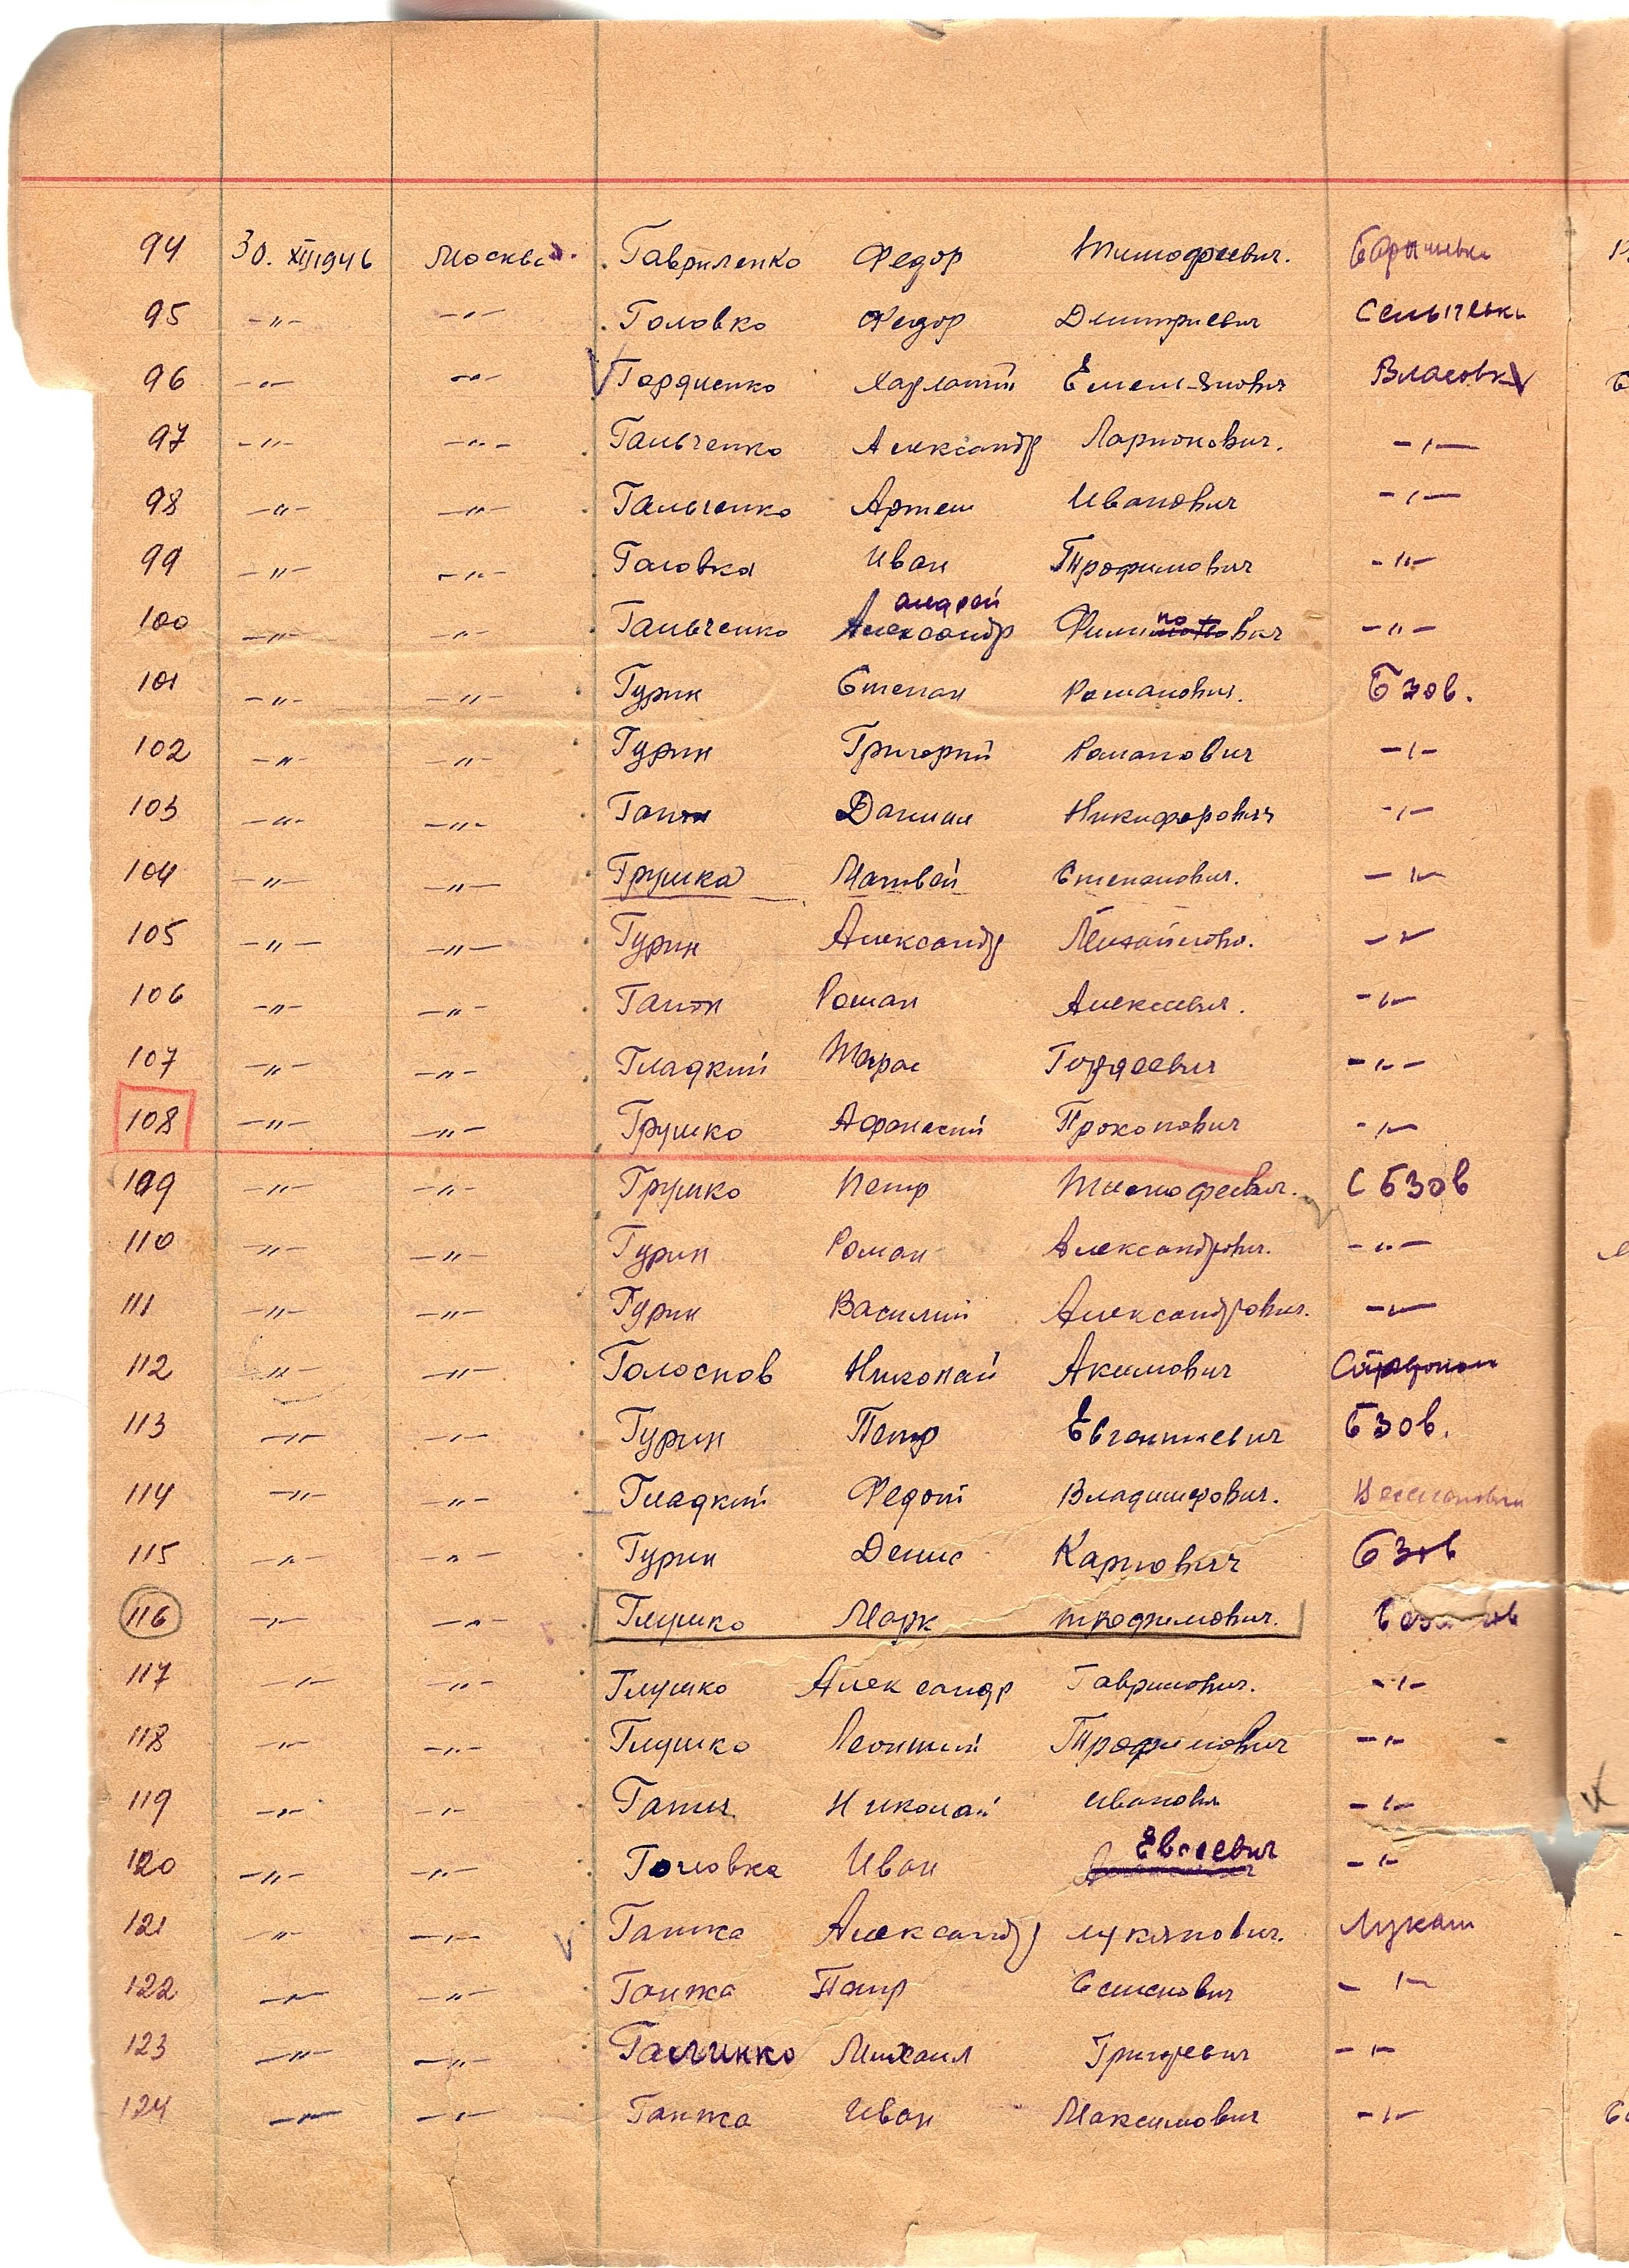 94 30. XII 1946 Москва. Гавриленко Федор Тимофеевич. Барышевка
95 -"- -"- Головко Федор Дмитриевич Селычевка
96 -"- -"- Гордиенко Харлатий Емельянович Власовка
97 -"- -"- Гальченко Александр Ларионович. -"-
98 -"- -"- Гальченко Артем Иванович -"-
99 -"- -"- Головка Иван Трофимович -"-
андрей по
100 -"- -"- Гальченко Александр Филипович -"-
101 -"- -"- Гурин Степан Романович. Бзов.
102 -"- -"- Гурин Григорий Романович -"-
103 -"- -"- Даниил Никифорович -"-
104 -"- -"- Грушка Матвей Степанович. -"-
105 -"- -"- Гурин Александр Михайлович. -"-
106 -"- -"- Роман Алексеевич. -"-
107 -"- -"- Гладкий Тарас Гордеевич -"-
108 -"- -"- Грушко Афанасий Прокопович -"-
109 -"- -"- Грушко Петр Тимофеевич. С Бзов
110 -"- -"- Гурин Роман Александрович. -"-
111 -"- -"- Гурин Василий Александрович. -"-
112 -"- -"- Голоснов Николай Акимович
113 -"- -"- Гурин Петр Евгениевич Бзов.
114 -"- -"- Гладкий Федот Владимирович.
115 -"- -"- Гурин Денис Карпович Бзов
116 -"- -"- Глушко Марк трофимович.
117 -"- -"- Глушко Александр Гаврилович. -"-
118 -"- -"- Глушко Леонтий Трофимович -"-
119 -"- -"- Николай Иванович -"-
Евсеевич
120 -"- -"- Головка Иван -"-
121 -"- -"- Ганжа Александр лукянович. Лукаш
122 -"- -"- Ганжа Петр Семенович -"-
123 -"- -"- Галчинко Михаил Григоревич -"-
124 -"- -"- Ганжа Иван Максимович -"-